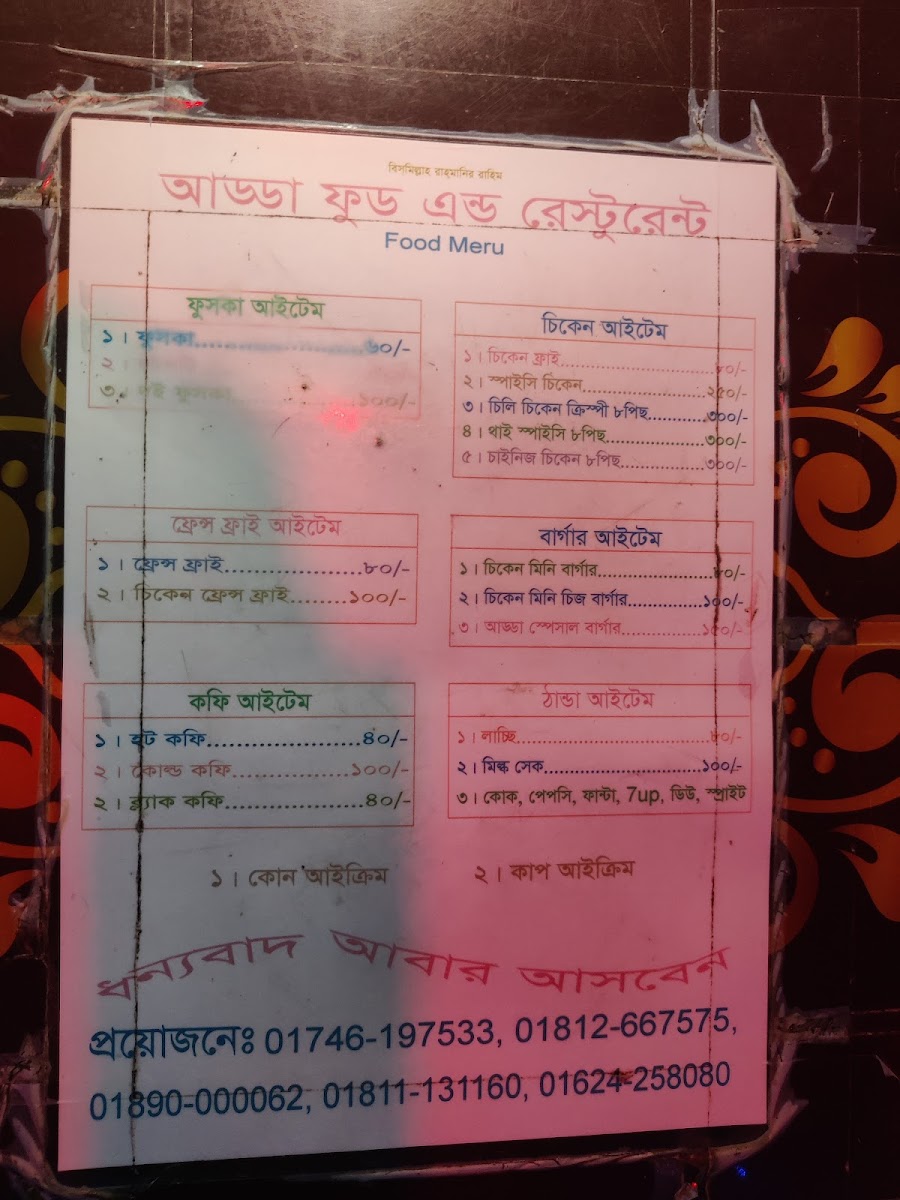 বিসমিল্লাহ রাহমানির রাহিম
আড্ডা ফুড এন্ড রেস্টুরেন্ট
Food Meru
ফুসকা আইটেম
১। ফুসকা........................৬০/-
২।
৩। দই ফুসকা....................১০০/-
চিকেন আইটেম
১। চিকেন ফ্রাই........................৮০/-
২। স্পাইসি চিকেন....................২৫০/-
৩। চিলি চিকেন ক্রিস্পী ৮পিছ.........৩০০/-
৪। থাই স্পাইসি ৮পিছ..................৩০০/-
৫। চাইনিজ চিকেন ৮পিছ................৩০০/-
ফ্রেন্স ফ্রাই আইটেম
১। ফ্রেন্স ফ্রাই....................৮০/-
২। চিকেন ফ্রেন্স ফ্রাই........১০০/-
বার্গার আইটেম
১। চিকেন মিনি বার্গার..................৮০/-
২। চিকেন মিনি চিজ বার্গার.............১০০/-
৩। আড্ডা স্পেসাল বার্গার..............১৫০/-
কফি আইটেম
১। হট কফি......................৪০/-
২। কোল্ড কফি..................১০০/-
২। ব্ল্যাক কফি....................৪০/-
ঠান্ডা আইটেম
১। লাচ্ছি..............................৮০/-
২। মিল্ক সেক..........................১০০/-
৩। কোক, পেপসি, ফান্টা, 7up, ডিউ, স্প্রাইট
১। কোন আইক্রিম
২। কাপ আইক্রিম
ধন্যবাদ আবার আসবেন
প্রয়োজনেঃ 01746-197533, 01812-667575,
01890-000062, 01811-131160, 01624-258080